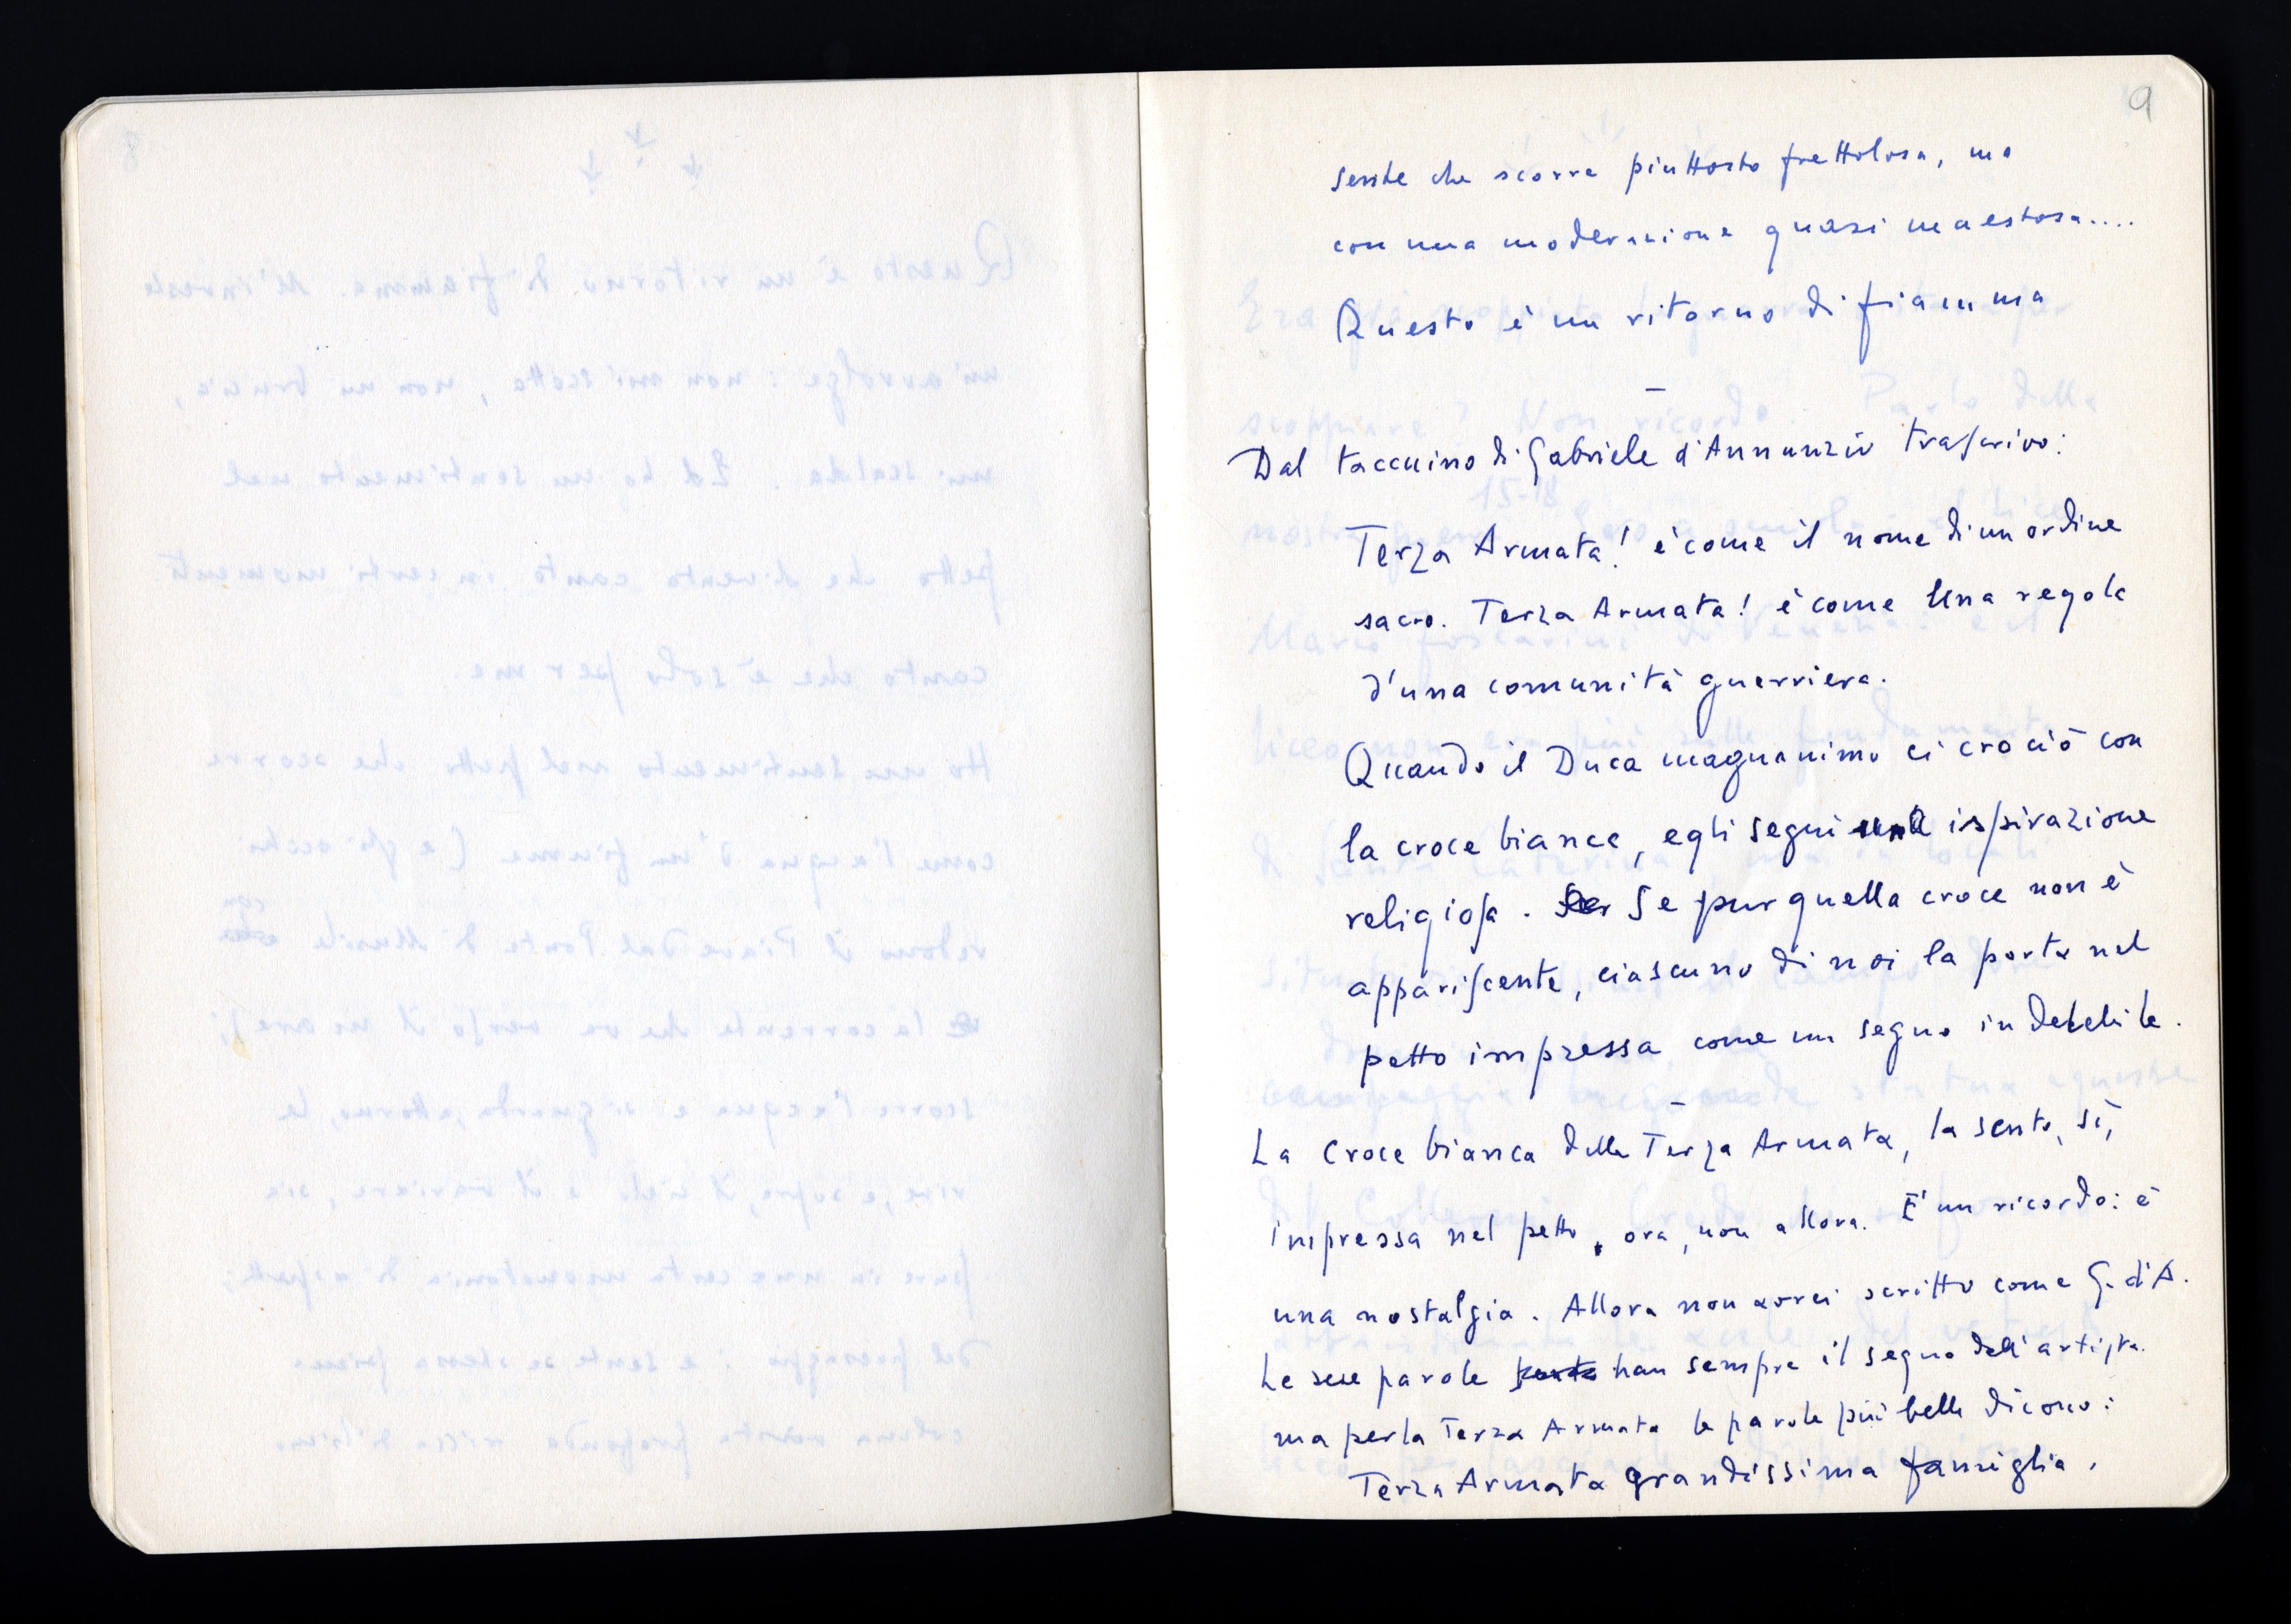 9
sente che scorre piuttosto frettolosa, ma
con una moderazione quasi maestosa....
Questo è un ritorno di fiamma
—
Dal taccuino di Gabriele d'Annunzio trascrivo:
Terza Armata! è come il nome di un ordine
sacro. Terza Armata! è come una regola
d'una comunità guerriera.
Quando il Duca magnanimo ci crociò con
la croce bianca, egli seguì una ispirazione
religiosa. Se pur quella croce non è
appariscente, ciascuno di noi la porta nel
petto impressa come un segno indelebile.
—
La Croce bianca della Terza Armata, la sento, sì,
impressa nel petto, ora, non allora. E' un ricordo: è
una nostalgia. Allora non avrei scritto come G. d'A.
Le sue parole han sempre il segno dell'artista.
ma per la Terza Armata le parole più belle dicono:
Terza Armata grandissima famiglia.